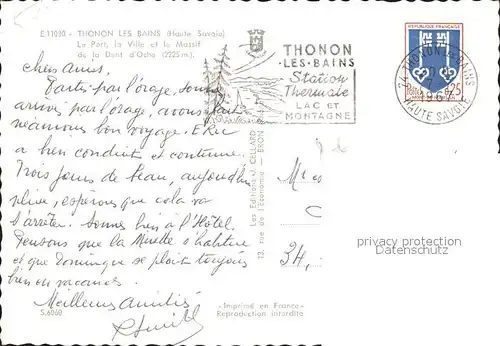 E.11030 - THONON LES BAINS (Haute Savoie)
Le Port, la Ville et le Massif
de la Dent d'Oche (2225 m).
THONON
-LES-BAINS
Station
Thermale
LAC ET
MONTAGNE
REPUBLIQUE FRANÇAISE
74 THONON LES BAINS
HAUTE SAVOIE
Chers Amis,
Partis par l'orage, sommes
arrivés par l'orage, avons fait
néanmoins bon voyage. ERic
a bien conduit et continue.
Trois jours de beau, aujourd'hui
pluie, espérons que cela va
s'arrêter. Sommes bien à l'Hôtel.
Pensons que la s'habitue
et que Dominique se plait toujours
bien en vacances.
Meilleures amitiés
Les Editions J. CELLARD
12, rue de l'Economie - BRON
M
34,
S.6060
-Imprimé en France-
Reproduction interdite
privacy protection
Datenschutz